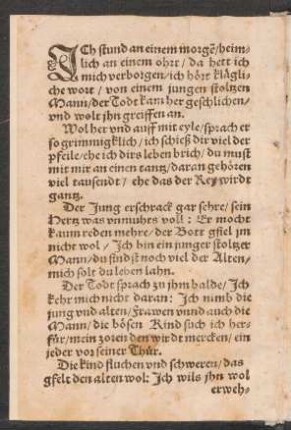 ICh stund an einem morgẽ/heim-
lich an einem ohrt/da hett ich
mich verborgen/ich hört klägli-
che wort/von einem jungen stoltzen
Mann/der Todt kam her geschlichen/
vnd wolt jhn greiffen an.
Wol her vnd auff mit eyle/sprach er
so grimmigklich/ich schieß dir viel der
pfeile/ehe ich dirs leben brich/du must
mit mir an einen tantz/daran gehören
viel tausendt/ehe das der Rey wirdt
gantz.
Der Jung erschrack gar sehre/sein
Hertz was vnmuhts voll: Er mocht
kaum reden mehre/der Bott gfiel jm
nicht wol/Ich bin ein junger stoltzer
Mann/du findst noch viel der Alten/
mich solt du leben lahn.
Der Todt sprach zu jhm halde/Ich
kehr mich nicht daran: Ich nimb die
jung vnd alten/Frawen vnnd auch die
Mann/die bösen Kind such ich her-
für/mein zoren den wirdt mercken/ein
jeder vor seiner Thür.
Die kind fluchen vnd schweren/das
gfelt den alten wol: Ich wils jhn wol
erweh-